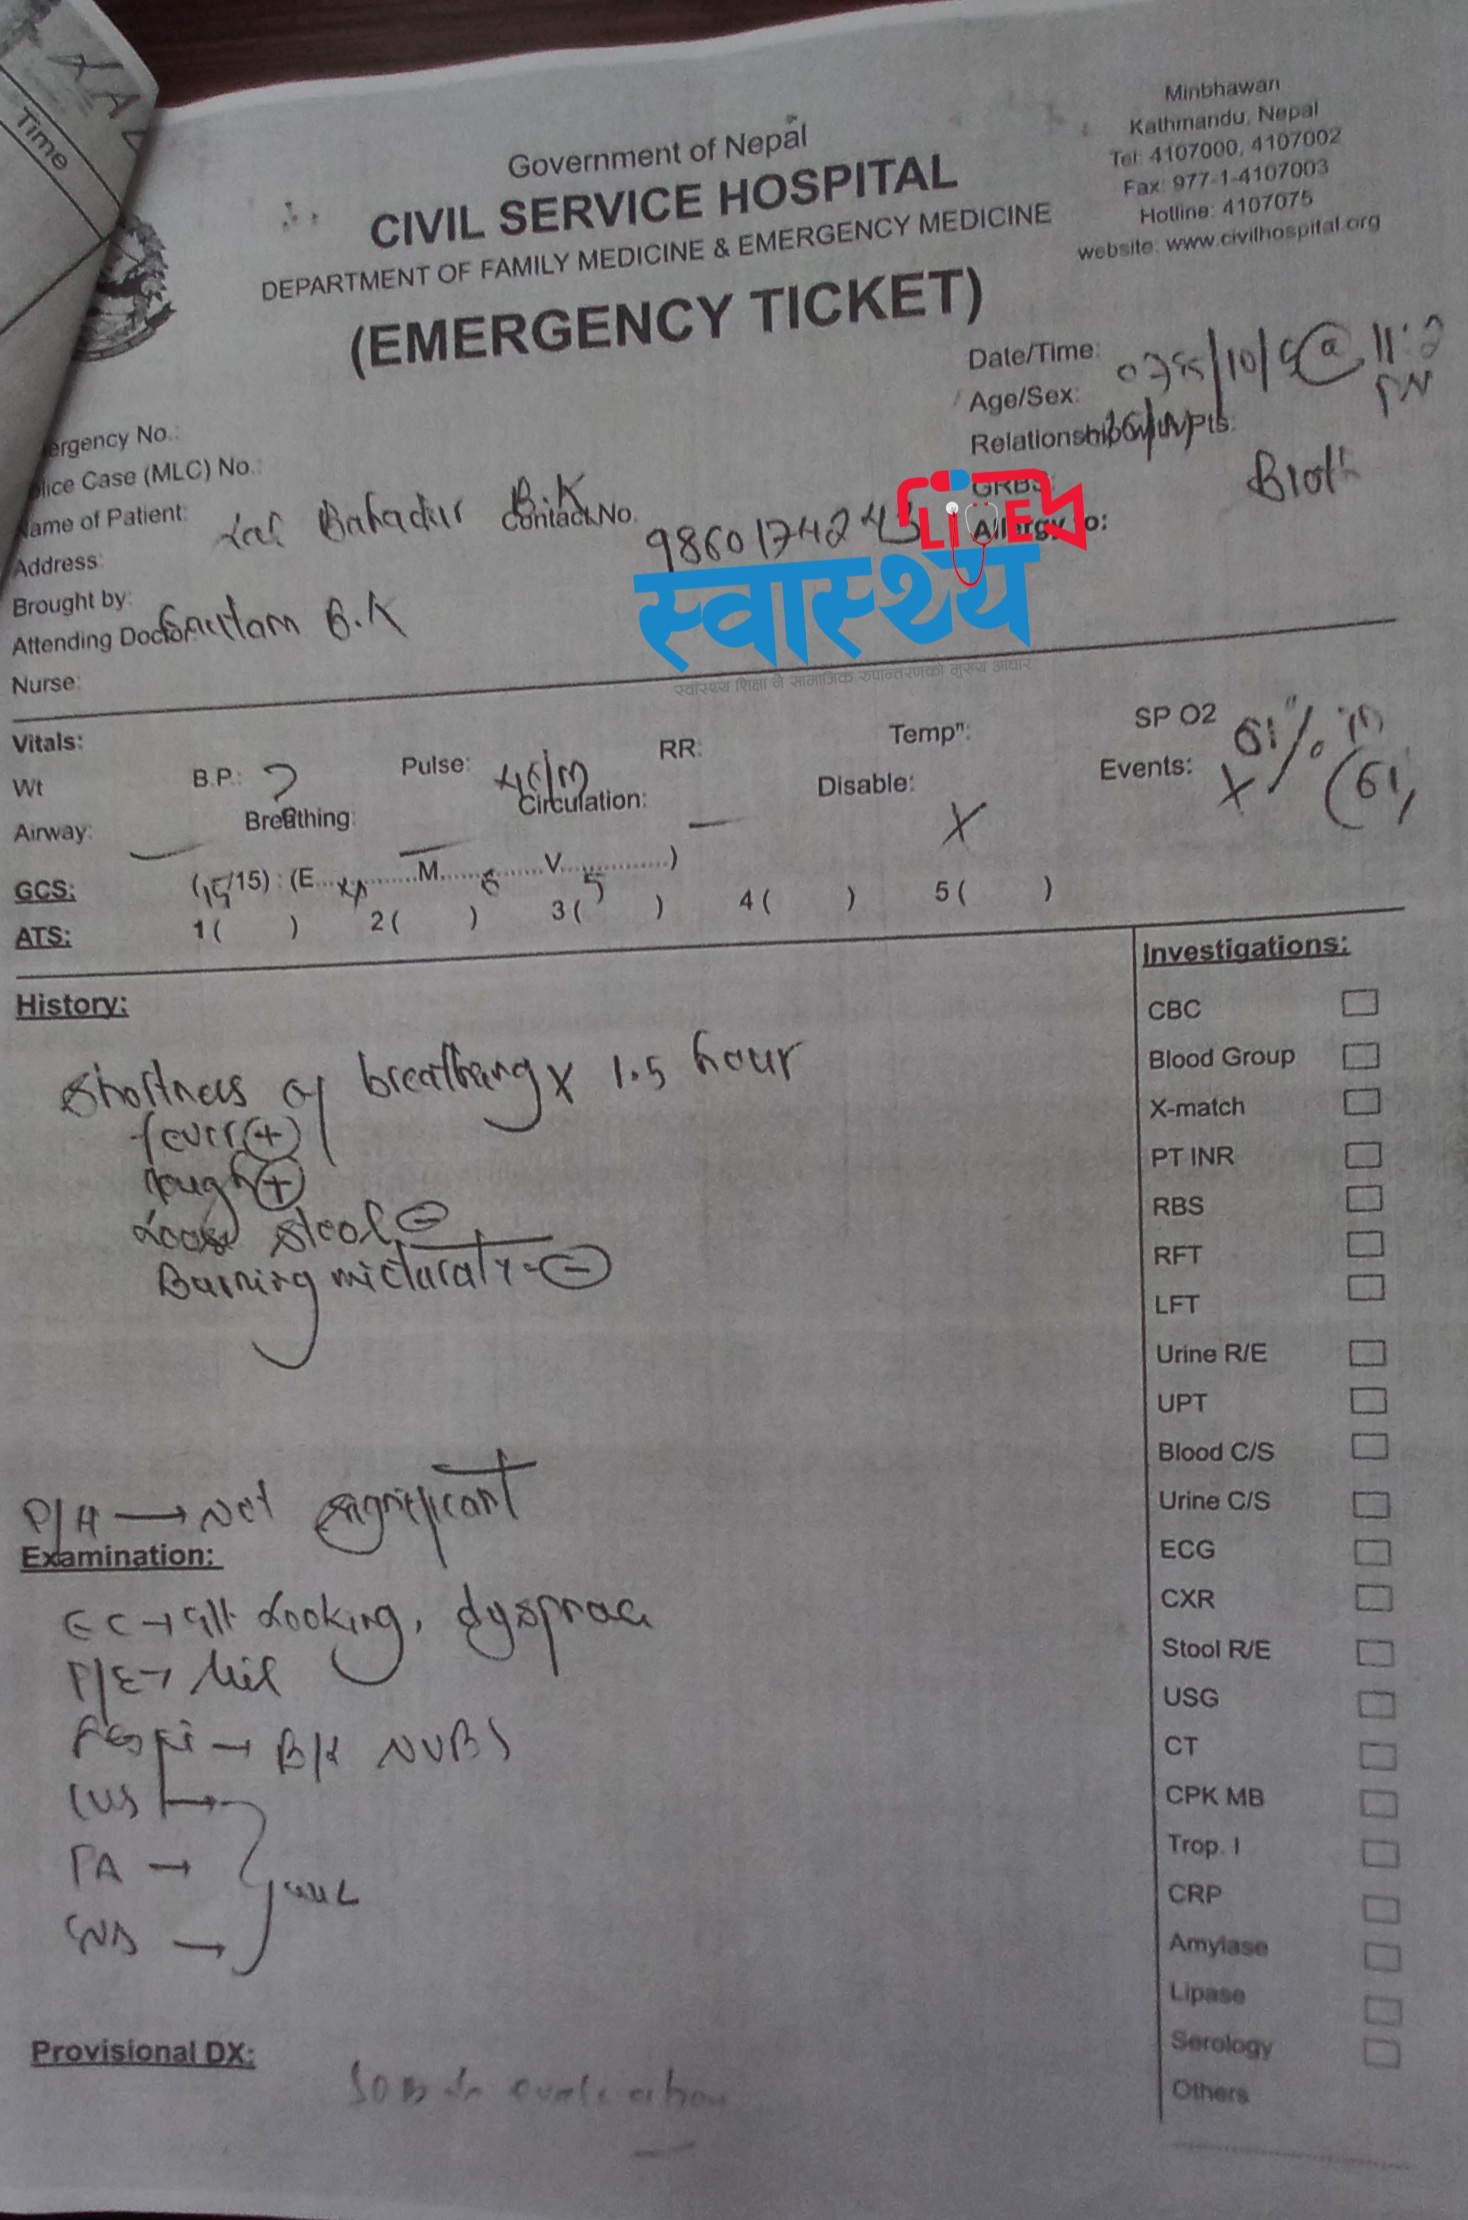 Time
Government of Nepal
CIVIL SERVICE HOSPITAL
DEPARTMENT OF FAMILY MEDICINE & EMERGENCY MEDICINE
(EMERGENCY TICKET)
Minbhawan
Kathmandu, Nepal
Tel: 4107000, 4107002
Fax: 977-1-4107003
Hotline: 4107075
website: www.civilhospital.org
Date/Time: @ 11:2
Age/Sex:
Relationship with Pts: Broth
GRBS:
Allergy to:
ergency No.:
lice Case (MLC) No.:
ame of Patient: Bahadur B.K Contact No.
Address:
Brought by: Gautam B.K
Attending Doctor
Nurse:
LiVE
स्वास्थ्य
स्वास्थ्य शिक्षा नै सामाजिक रुपान्तरणको मुख्य आधार
Vitals:
Wt B.P.: ? Pulse: RR: Temp": SP O2 61% in
Airway: Breathing: Circulation: Disable: X Events: X (61)
GCS: (15/15) : (E M 6 V 5 )
ATS: 1 ( ) 2 ( ) 3 ( ) 4 ( ) 5 ( )
History:
Shortness of breathing x 1.5 hour
fever (+)
cough (+)
Loose stool (-)
Burning (-)
P/H → Not significant
Examination:
GC → ill looking,
P/E → Nil
→ B/L NVBS
PA →
CNS →
Provisional DX:
SOB
Investigations:
CBC
Blood Group
X-match
PT INR
RBS
RFT
LFT
Urine R/E
UPT
Blood C/S
Urine C/S
ECG
CXR
Stool R/E
USG
CT
CPK MB
Trop. I
CRP
Amylase
Lipase
Serology
Others